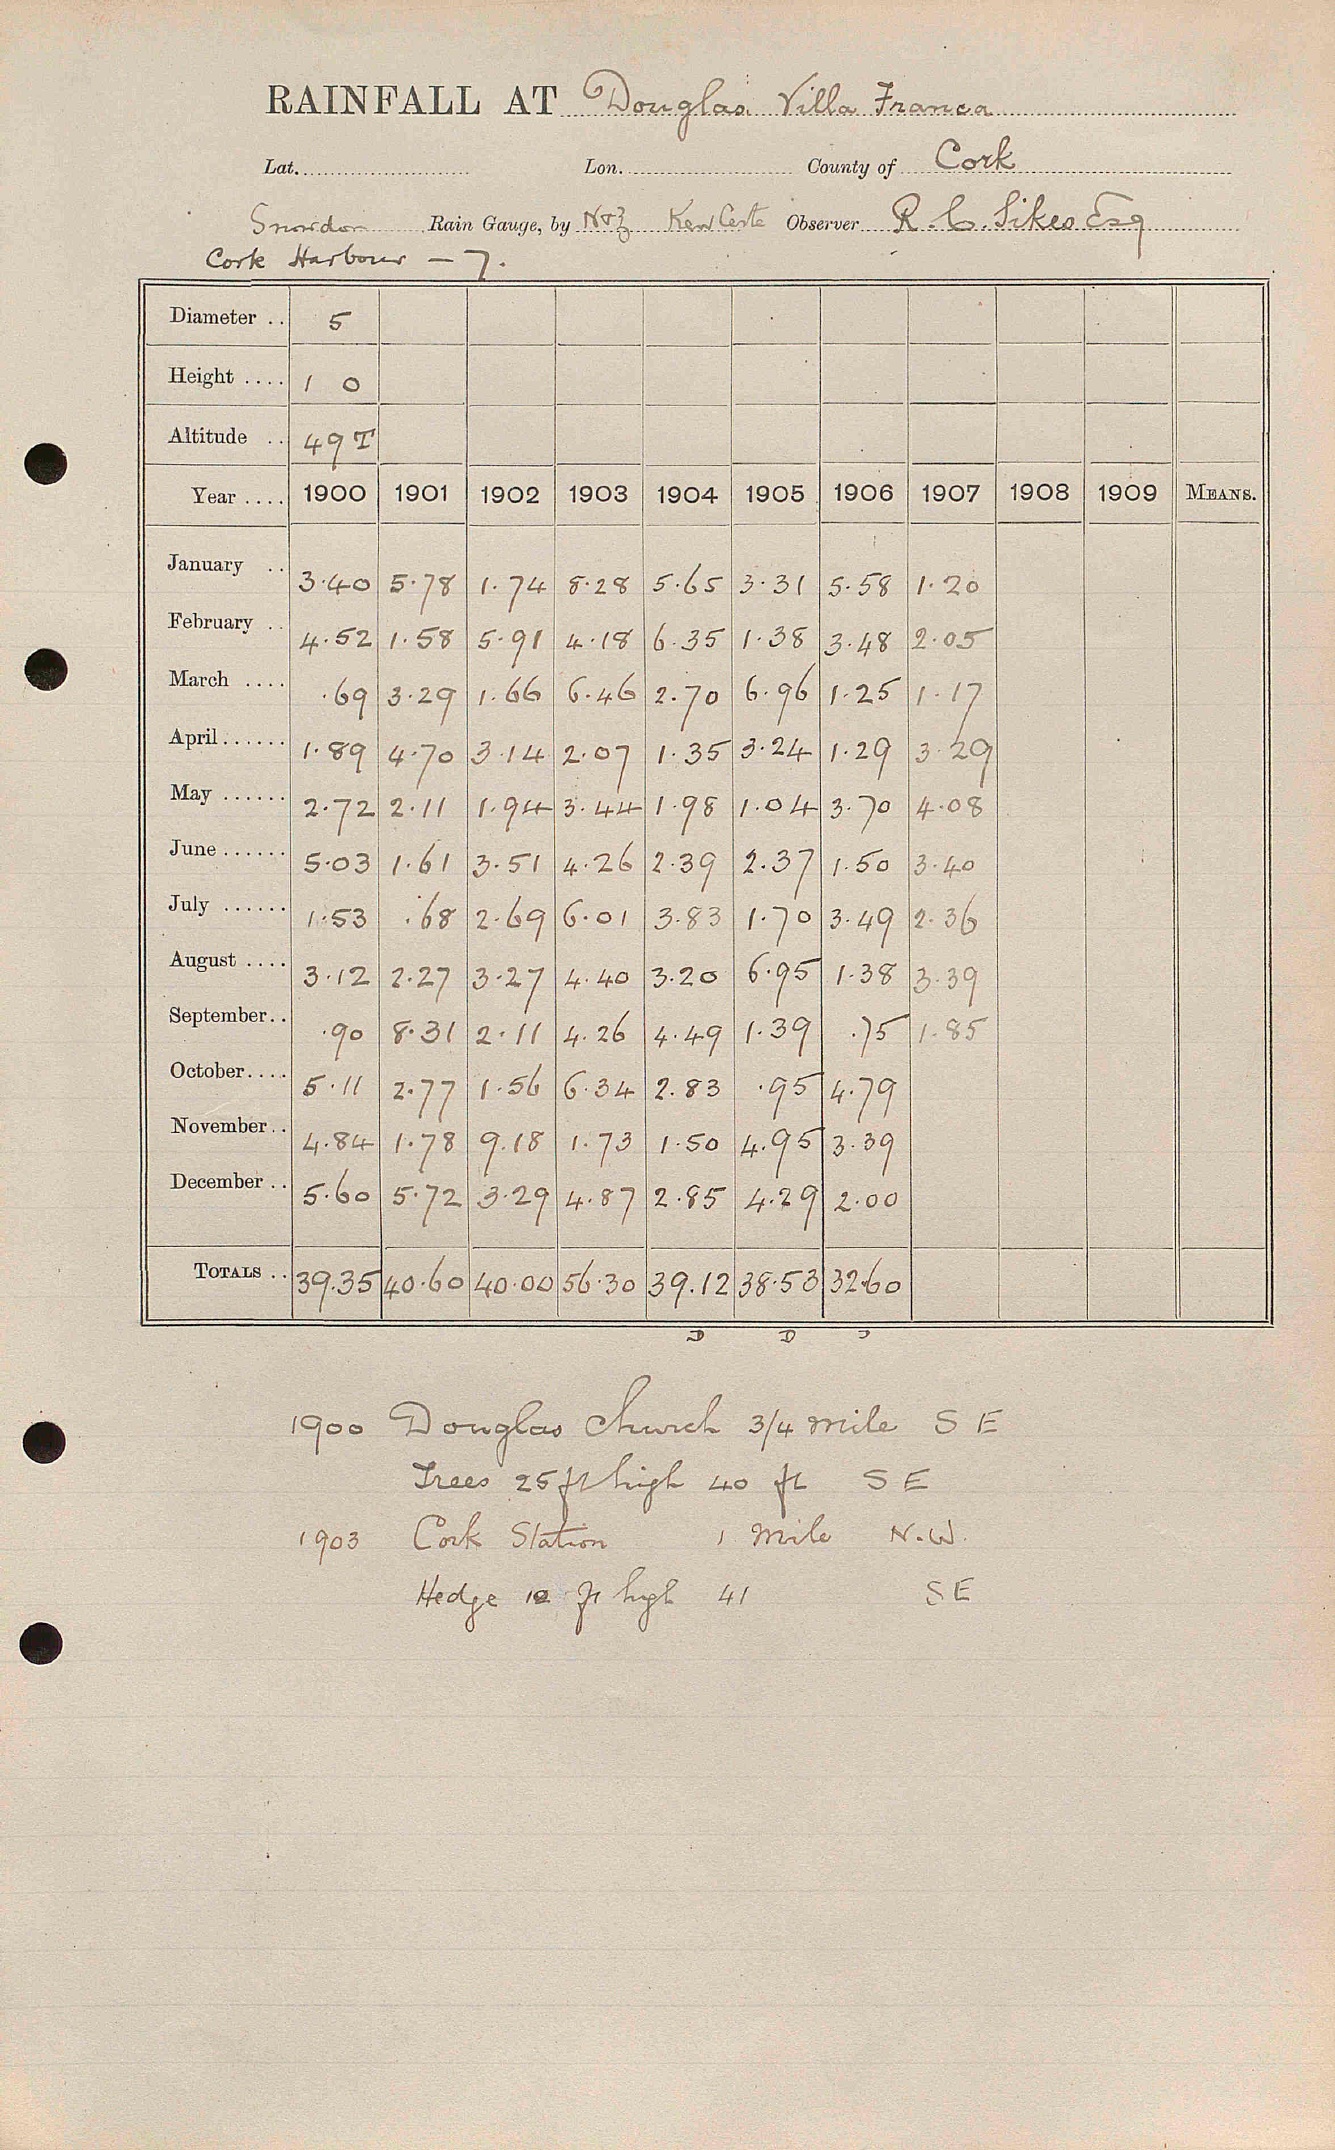 RAINFALL AT Douglas. Villa Franca
Lat. Lon. County of Cork
Snowdon Rain Gauge, by N&Z Kew Certe Observer R. C. Sikes Esq
Cork Harbour – 7.
Diameter .. 5
Height .... 1 0
Altitude .. 49 T
Year .... 1900 1901 1902 1903 1904 1905 1906 1907 1908 1909 MEANS.
January .. 3.40 5.78 1.74 8.28 5.65 3.31 5.58 1.20
February .. 4.52 1.58 5.91 4.18 6.35 1.38 3.48 2.05
March .... .69 3.29 1.66 6.46 2.70 6.96 1.25 1.17
April...... 1.89 4.70 3.14 2.07 1.35 3.24 1.29 3.29
May ...... 2.72 2.11 1.94 3.44 1.98 1.04 3.70 4.08
June ...... 5.03 1.61 3.51 4.26 2.39 2.37 1.50 3.40
July ...... 1.53 .68 2.69 6.01 3.83 1.70 3.49 2.36
August .... 3.12 2.27 3.27 4.40 3.20 6.95 1.38 3.39
September.. .90 8.31 2.11 4.26 4.49 1.39 .75 1.85
October.... 5.11 2.77 1.56 6.34 2.83 .95 4.79
November.. 4.84 1.78 9.18 1.73 1.50 4.95 3.39
December .. 5.60 5.72 3.29 4.87 2.85 4.29 2.00
TOTALS .. 39.35 40.60 40.00 56.30 39.12 38.53 32.60
D D D
1900 Douglas Church 3/4 mile S E
Trees 25 ft high 40 ft S E
1903 Cork Station 1 Mile N.W.
Hedge ft high 41 S E